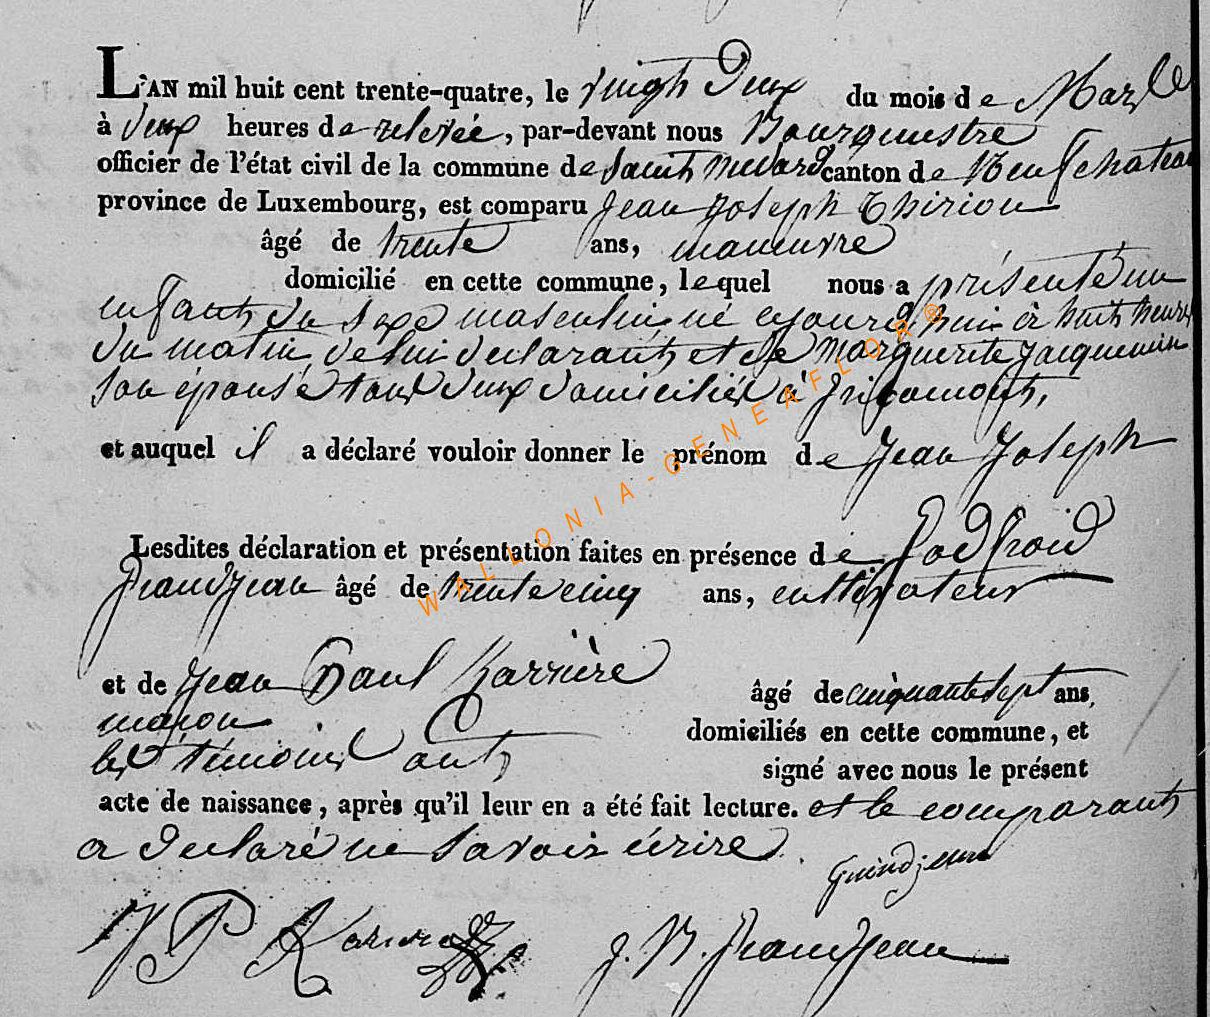 L'AN mil huit cent trente-quatre, le vingt Deux du mois de Mars
à Deux heures de relevée, par-devant nous Bourgmestre
officier de l'état civil de la commune de Saint Médard canton de Neufchateau
province de Luxembourg, est comparu Jean Joseph Thiriou
âgé de trente ans, manœuvre
domicilié en cette commune, lequel nous a présenté un
enfant du sexe masculin né cejourd'hui à huit heures
du matin, de lui declarant et de Marguerite Jacquemin
son épouse tous deux domiciliés à
et auquel il a déclaré vouloir donner le prénom de Jean Joseph
Lesdites déclaration et présentation faites en présence de Godfroid
Grandjean âgé de trente cinq ans, cultivateur
et de Jean Paul Karrière âgé de cinquante sept ans,
maçon domiciliés en cette commune, et
les témoins ont signé avec nous le présent
acte de naissance, après qu'il leur en a été fait lecture. et le comparant
a déclaré ne savoir écrire.
J P
J. N. Grandjean
WALLONIA-GENEAFLOR®